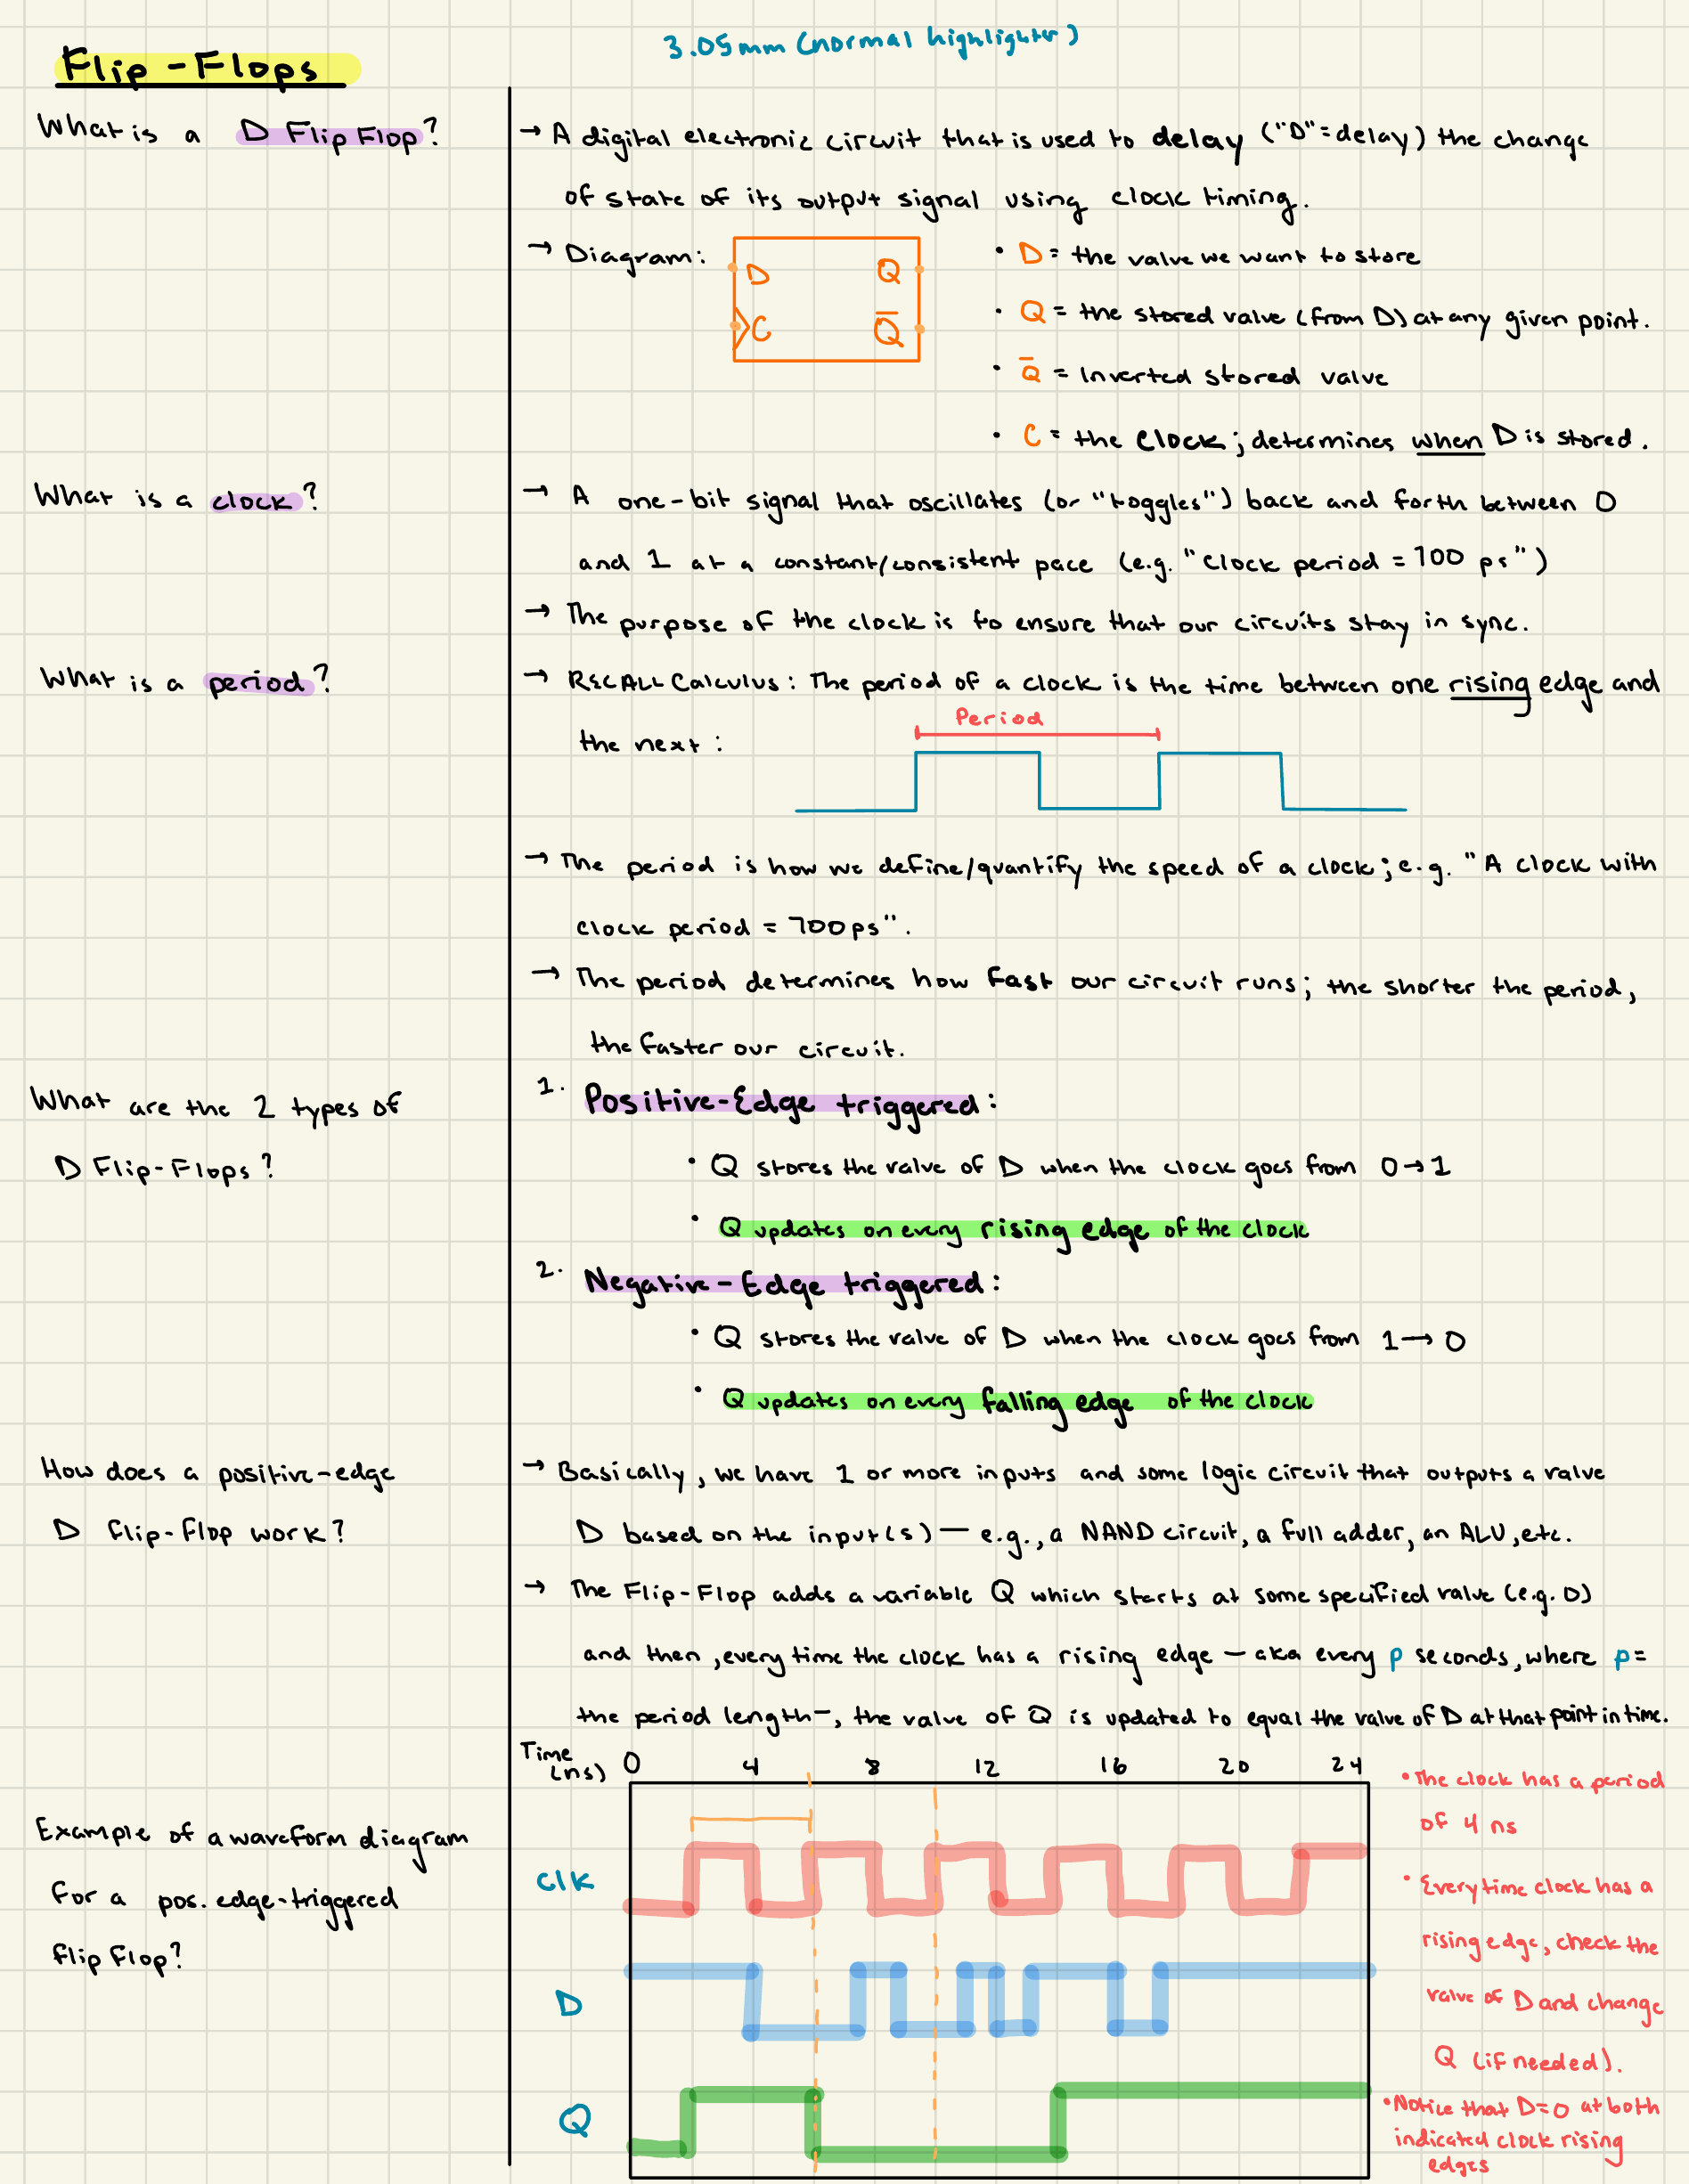 3.05mm (normal highlighter)
Flip-Flops
What is a D Flip Flop?
→ A digital electronic circuit that is used to delay ("D"=delay) the change
of state of its output signal using clock timing.
→ Diagram:
D Q
C Q̅
• D = the value we want to store
• Q = the stored value (from D) at any given point.
• Q̅ = Inverted stored value
• C = the clock; determines when D is stored.
What is a clock?
→ A one-bit signal that oscillates (or "toggles") back and forth between 0
and 1 at a constant/consistent pace (e.g. "Clock period = 700 ps")
→ The purpose of the clock is to ensure that our circuits stay in sync.
What is a period?
→ RECALL Calculus: The period of a clock is the time between one rising edge and
the next:
Period
→ The period is how we define/quantify the speed of a clock; e.g. "A clock with
clock period = 700ps".
→ The period determines how fast our circuit runs; the shorter the period,
the faster our circuit.
What are the 2 types of
D Flip-Flops?
1. Positive-Edge triggered:
• Q stores the value of D when the clock goes from 0→1
• Q updates on every rising edge of the clock
2. Negative-Edge triggered:
• Q stores the value of D when the clock goes from 1→0
• Q updates on every falling edge of the clock
How does a positive-edge
D flip-flop work?
→ Basically, we have 1 or more inputs and some logic circuit that outputs a value
D based on the input(s) — e.g., a NAND circuit, a full adder, an ALU, etc.
→ The Flip-Flop adds a variable Q which starts at some specified value (e.g. 0)
and then, every time the clock has a rising edge — aka every p seconds, where p=
the period length—, the value of Q is updated to equal the value of D at that point in time.
Example of a waveform diagram
for a pos. edge-triggered
flip flop?
Time (ns) 0 4 8 12 16 20 24
Clk
D
Q
• The clock has a period
of 4 ns
• Everytime clock has a
rising edge, check the
value of D and change
Q (if needed).
• Notice that D=0 at both
indicated clock rising
edges